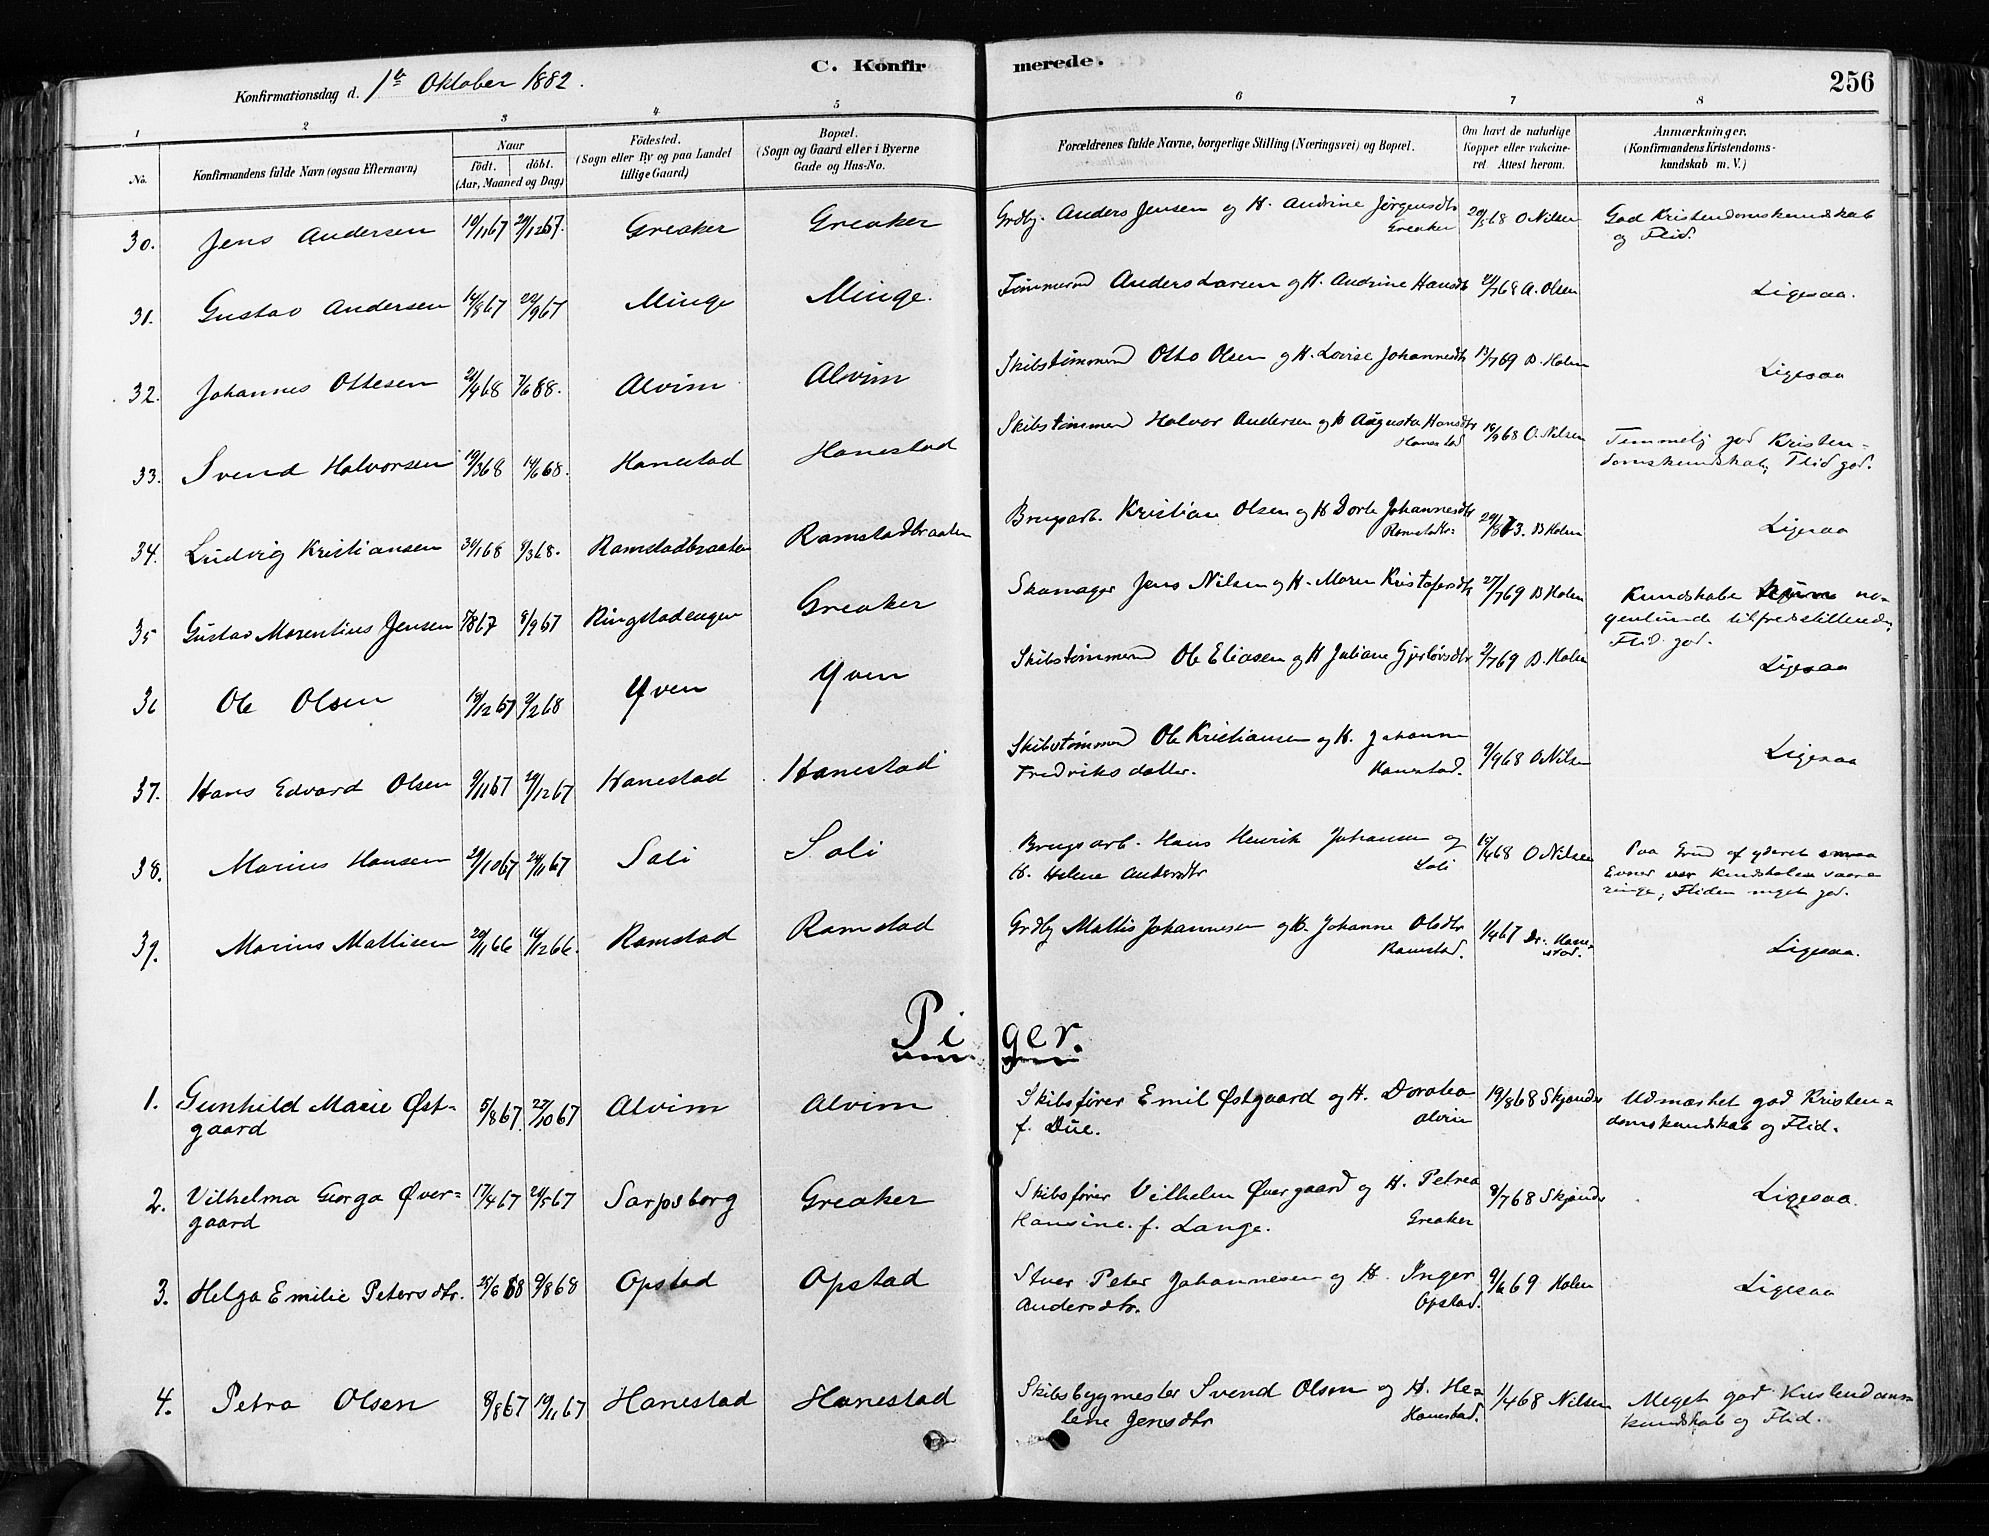 C. Konfirmerede.
256
Konfirmationsdag d. 1ste Oktober 1882.
1 2 3 4 5 6 7 8
No.
Konfirmandens fulde Navn (ogsaa Efternavn)
Naar
Födt. döbt.
(Aar, Maaned og Dag)
Födested.
(Sogn eller By og paa Landet
tillige Gaard)
Bopæl.
(Sogn og Gaard eller i Byerne
Gade og Hus-No.
Forældrenes fulde Navne, borgerlige Stilling (Næringsvei) og Bopæl.
Om havt de naturlige
Kopper eller vakcineret
Attest herom.
Anmærkninger.
(Konfirmandens Kristendomskundskab
m. V.)
30. Jens Andersen 19/11 67 29/12 67. Greaker Greaker Grdbj. Anders Jensen og H. Andrine Jørgensdtr 20/5 68 O Nilsen God Kristendomskundskab
Greaker og Flid.
31. Gustav Andersen 14/8 67 22/9 67 Minge Minge. Tømmermd Anders Larsen og H. Andrine Hansdtr 2/7 68 A. Olsen Ligesaa.
32. Johannes Ottesen 20/4 68 7/6 68. Alvim Alvim Skibstømmermd Otto Olsen og H. Lovise Johannesdtr 13/7 69 B. Holm Ligesaa
33. Svend Halvorsen 19/3 68 14/6 68. Hanestad Hanestad Skibstømmermd Halvor Andersen og H Augusta Hansdtr 16/9 68 O. Nilsen Temmelig god Kristen-
Hanestad domskundskab, Flid god.
34. Ludvig Kristiansen 30/1 68 8/3 68. Ramstadbraaten Ramstadbraaten Brugsarb. Kristian Olsen og H Dorte Johannesdtr 29/8 73. B Holm Ligesaa
Ramstadbr.
35 Gustav Marentius Jensen 7/8 67 8/9 67 Ringstadengen Greaker Skomager Jens Nilsen og H. Maren Kristofersdtr 27/7 69 B Holm Kundskabe no-
genlunde tilfredstillende,
Flid god.
36 Ole Olsen 18/12 67 2/2 68 Yven Yven Skibstømmermd Ole Eliasen og H Juliane Gjerløvsdtr 2/7 69 B. Holm Ligesaa
37. Hans Edvard Olsen 9/11 67 29/12 67 Hanestad Hanestad Skibstømmermd Ole Kristiansen og H. Johanne 9/9 68 O Nilsen Ligesaa
Fredriksdatter. Hanestad.
38. Marius Hansen 29/10 67 24/11 67 Soli Soli Brugsarb. Hans Henrik Johansen og 18/4 68 O Nilsen Paa Grund af yderst smaa
H. Helene Andersdtr Soli Evner Kundskaben
ringe; Fliden meget god.
39. Marius Mattisen 20/11 66 16/12 66. Ramstad Ramstad Grdbj Mattis Johannesen og H. Johanne Olsdtr 1/4 67 Dr. Hane-
Ramstad. stad. Ligesaa.
Piger.
1. Gunhild Marie Øst- 5/8 67. 27/10 67 Alvim Alvim Skibsfører Emil Østgaard og H. Dorothea 19/8 68 Skjande Udmærket god Kristen-
gaard f. Due. Alvim domskundskab og Flid.
2. Vilhelma Georga Øver- 17/4 67 24/5 67 Sarpsborg Greaker Skibsfører Vilhelm Øvergaard og H. Petrea 8/7 68 Skjande Ligesaa.
gaard Hansine. f. Lange. Greaker
3. Helga Emilie Petersdtr. 25/6 68 9/8 68 Opstad Opstad Stuer Peter Johannesen og H. Inger 9/6 69 Holm Ligesaa
Andersdtr. Opstad.
4. Petra Olsen 8/8 67 19/11 67 Hanestad Hanestad Skibsbygmester Svend Olsen og H. He- 1/4 68 Nilsen Meget god Kristendoms-
lene Jensdtr Hanestad. kundskab og Flid.